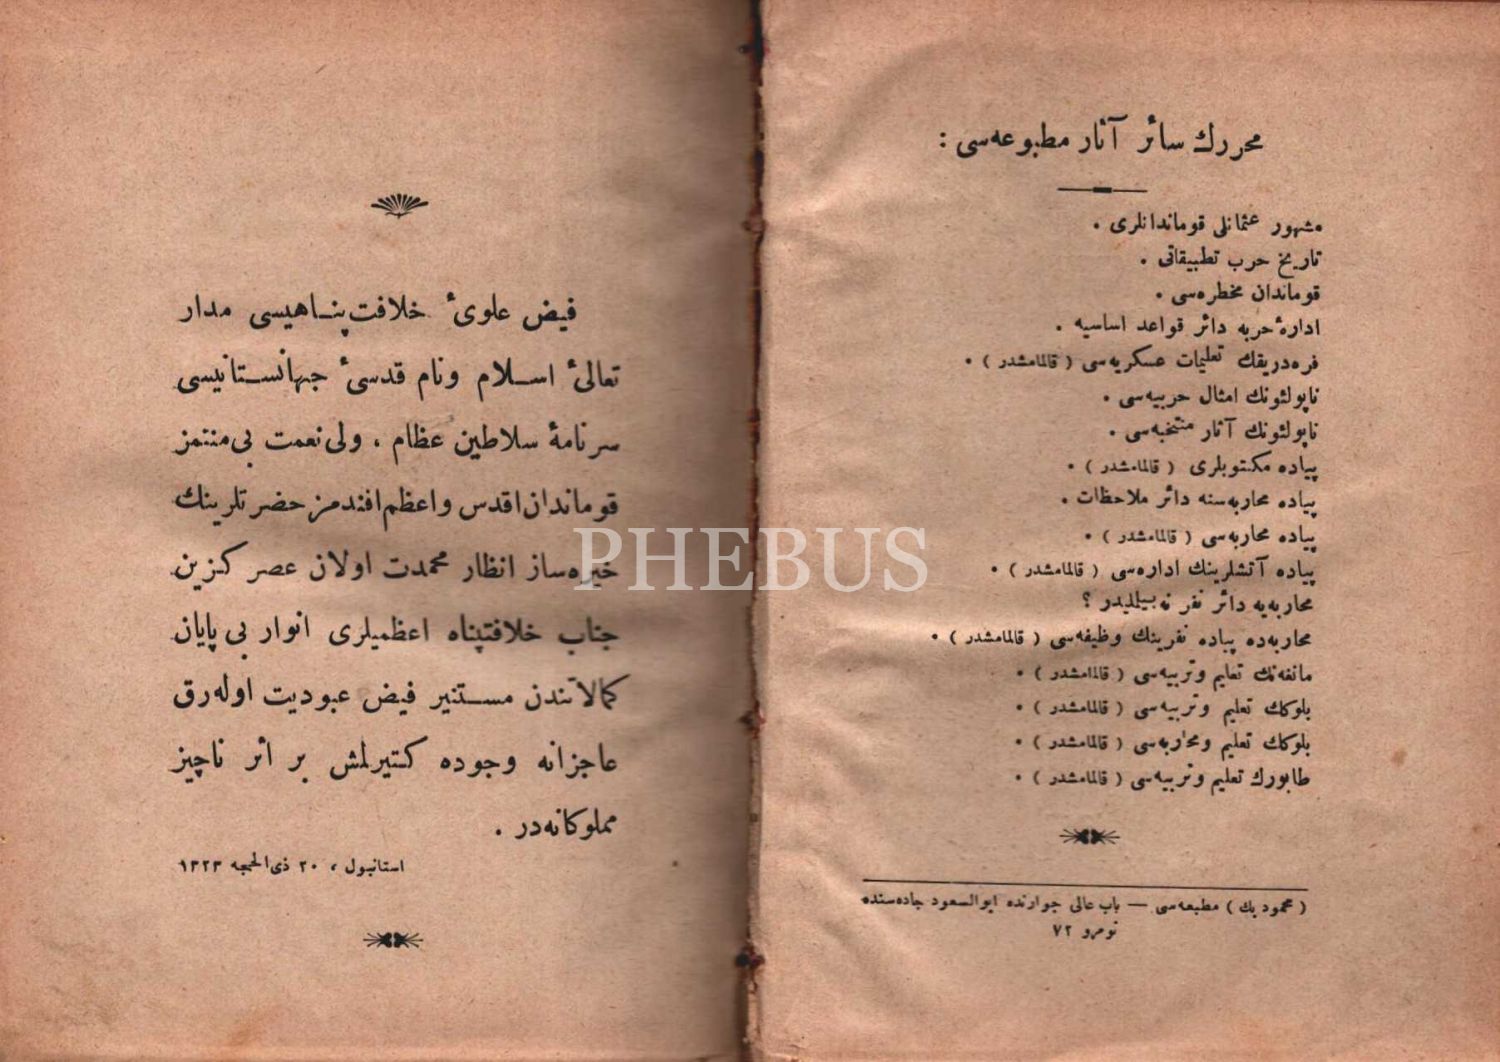 محررك سائر آثار مطبوعه‌سی :
مشهور عثمانلی قوماندانلری .
تاریخ حرب تطبیقاتی .
قوماندان مخطره‌سی .
ادارۀ حربه دائر قواعد اساسیه .
فره‌دریقك تعلیمات عسكریه‌سی ( قالمامشدر ) .
ناپولئونك امثال حربیه‌سی .
ناپولئونك آثار منتخبه‌سی .
پیاده مكتوبلری ( قالمامشدر ) .
پیاده محاربه‌سنه دائر ملاحظات .
پیاده محاربه‌سی ( قالمامشدر ) .
پیاده آتشلرینك اداره‌سی ( قالمامشدر ) .
محاربه‌یه دائر نفر نه بیلملیدر ؟
محاربه‌ده پیاده نفرینك وظیفه‌سی ( قالمامشدر ) .
مانغه‌نك تعلیم وتربیه‌سی ( قالمامشدر ) .
بلوكك تعلیم وتربیه‌سی ( قالمامشدر ) .
بلوكك تعلیم ومحاربه‌سی ( قالمامشدر ) .
طابورك تعلیم وتربیه‌سی ( قالمامشدر ) .
( محمود بك ) مطبعه‌سی — باب عالی جوارنده ابوالسعود جاده‌سنده
نومرو ٧٢
فیض علوئ خلافت‌پناهیسی مدار
تعالئ اسلام ونام قدسئ جهانستانیسی
سرنامۀ سلاطین عظام ، ولی‌نعمت بی‌منتمز
قوماندان اقدس واعظم افندمز حضرتلرینك
خیره‌ساز انظار محمدت اولان عصر كزین
جناب خلافتپناه اعظمیلری انوار بی پایان
كمالاتندن مستنیر فیض عبودیت اوله‌رق
عاجزانه وجوده كتیرلمش بر اثر ناچیز
مملوكانه‌در .
استانبول ، ٢٠ ذی‌الحجه ١٣٢٣
PHEBUS